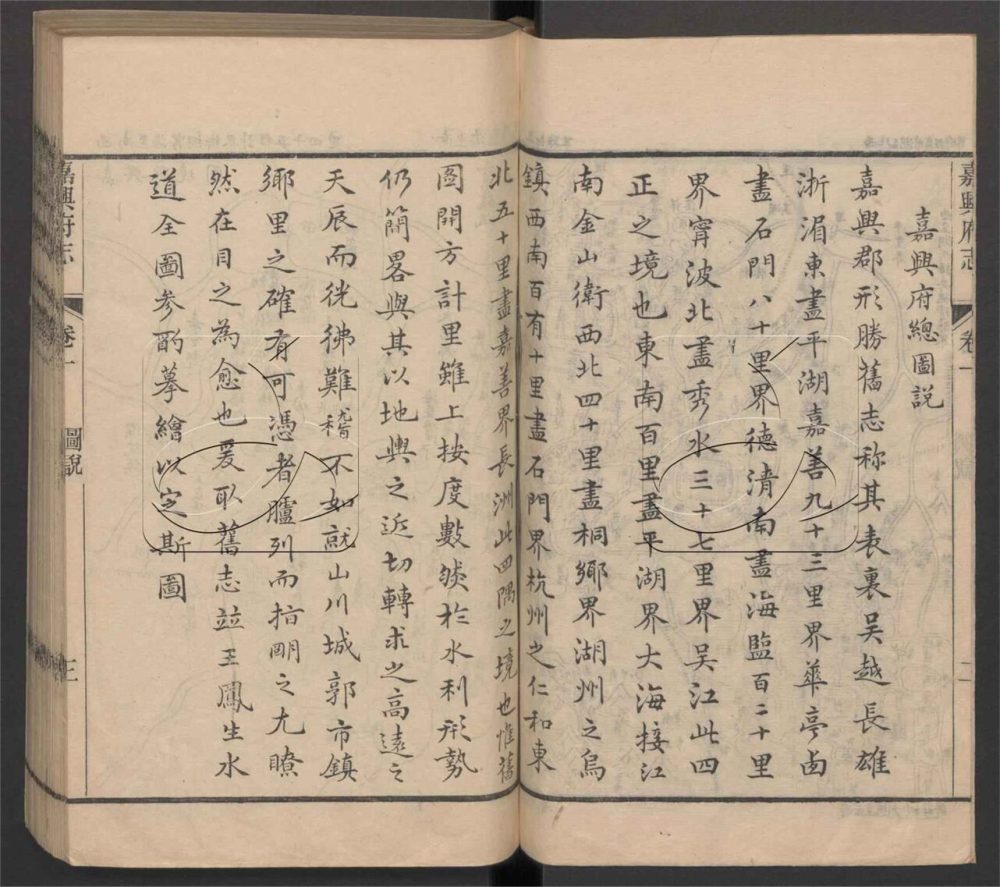 嘉興府志
卷一
二
嘉興府總圖説
嘉興郡形勝舊志称其表裏吴越長雄
浙湄東盡平湖嘉善九十三里界華亭西
盡石門八十里界德清南盡海監百二十里
界甯波北盡秀水三十七里界吴江此四
正之境也東南百里盡平湖界大海接江
南金山衛西北四十里盡桐鄉界湖州之烏
鎮西南百有十里盡石門界杭州之仁和東
北五十里盡嘉善界長洲此四隅之境也惟舊
圖開方計里雖上按度數然於水利形勢
仍簡畧與其以地輿之近切轉求之高遠之
天辰而恍彿難稽不如就山川城郭市鎮
鄉里之確有可憑者臚列而指明之尤瞭
然在目之為愈也爰取舊志並王鳳生水
道全圖參酌摹繪以定斯圖
嘉興府志
卷一
圖説
三